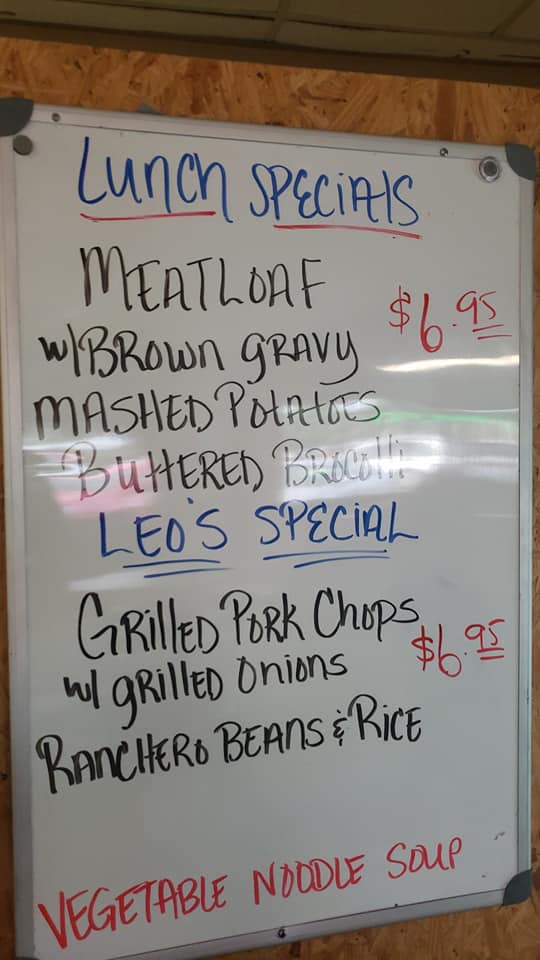 LUNCH SPECIALS
MEATLOAF
$6.95
W/BROWN GRAVY
MASHED POTATOES
BUTTERED BROCOLLI
LEO'S SPECIAL
GRILLED PORK CHOPS
$6.95
W/ GRILLED ONIONS
RANCHERO BEANS & RICE
VEGETABLE NOODLE SOUP